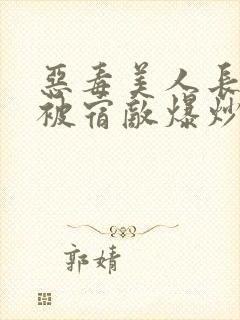 惡毒美人長
被宿敵爆炒
郭婧